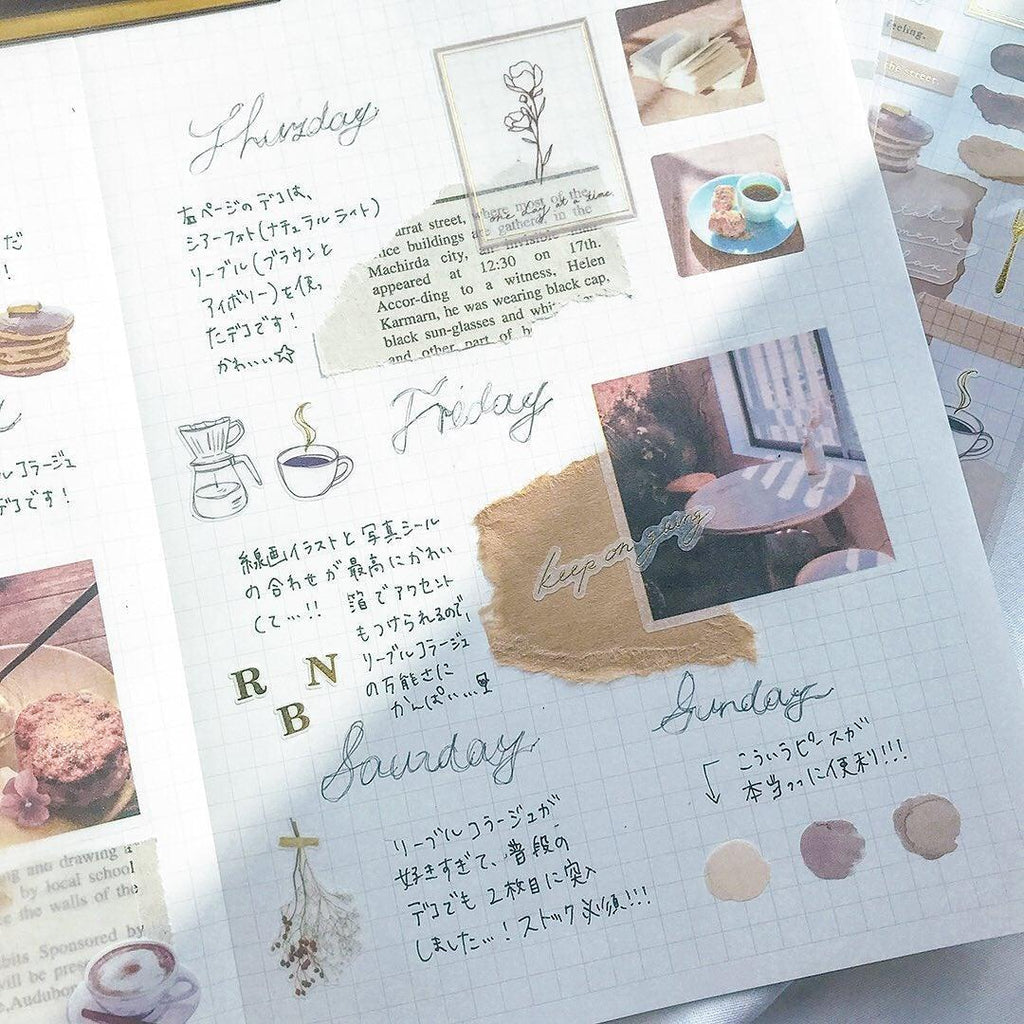 だ
!
ルコラージュ
デコです!
ing and drawing a
by local school
ce the walls of the
bits Sponsored by
will be pres
,Audubon
Thursday
右ページのデコは、
シアーフォト(ナチュラルライト)
リーブル(ブラウンと
アイボリー)を使っ
たデコです!
かわいい☆
one day at a time.
arrat street, where most of the
ice buildings are gathered, in the
Machirda city, an invisible man
appeared at 12:30 on 17th.
Accor-ding to a witness, Helen
Karmarn, he was wearing black cap,
black sun-glasses and whi
and other part of b
Friday
線画イラストと写真シール
の合わせが最高にかわい
くて…!! 箔でアクセント
もつけられるので、
リーブルコラージュ
の万能さに
かんぱい…
R B N
keep on going
Saurday
リーブルコラージュが
好きすぎて、普段の
デコでも2枚目に突入
しました…!ストック必須!!!
Sunday
こういうピースが
本当っっに便利!!!
feeling.
the street.